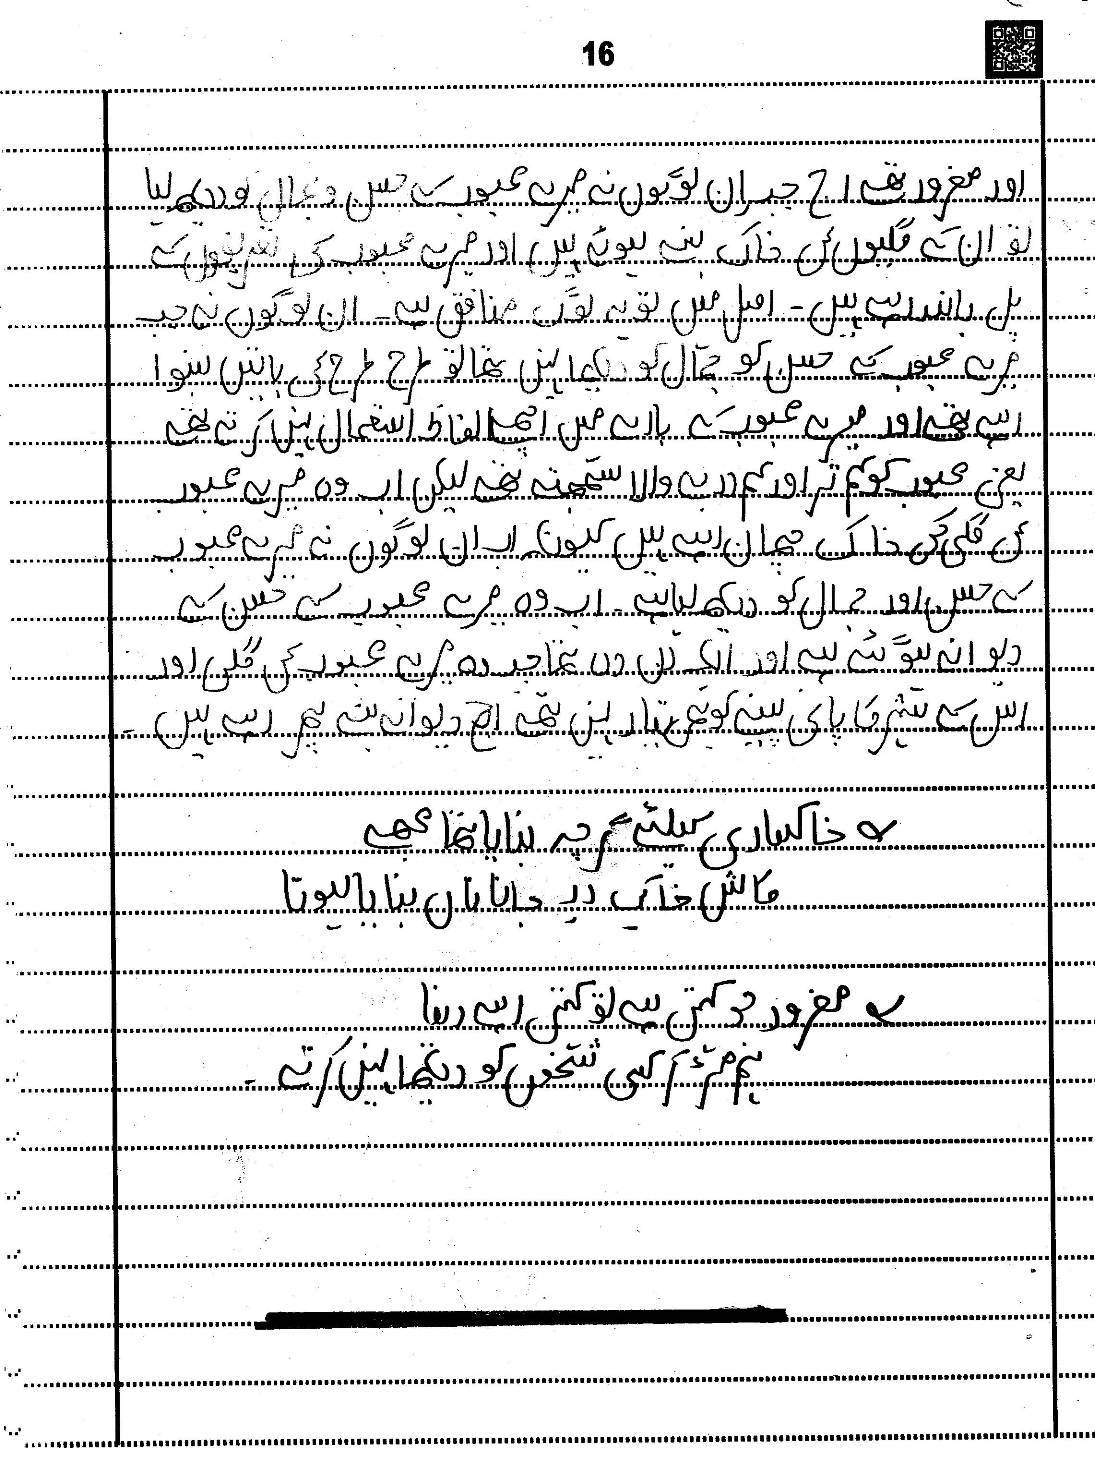 16
اور مغرور تھے آج جب ان لوگوں نے میرے محبوب کے حسن و جمال کو دیکھ لیا
تو ان کے گلیوں کی خاک بنے ہوئے ہیں اور میرے محبوب کی تعریفوں کے
پل باندھ رہے ہیں ۔ اصل میں تو یہ لوگ منافق ہے ۔ ان لوگوں نے جب
میرے محبوب کے حسن کو جمال کو دیکھا نہیں تھا تو طرح طرح کی باتیں سنوا
رہے تھے اور میرے محبوب کے بارے میں اچھے الفاظ استعمال نہیں کرتے تھے
یعنی محبوب کو کم تر اور کم درجے والا سمجھتے تھے لیکن اب وہ میرے محبوب
کی گلی کی خاک چھان رہے ہیں کیوں اب ان لوگوں نے میرے محبوب
کے حسن اور جمال کو دیکھ لیا ہے ۔ اب وہ میرے محبوب کے حسن کے
دیوانے ہوگئے ہے اور ایک دن وہ تھا جب وہ میرے محبوب کی گلی اور
اس کے شہر کا پانی پینے کو بھی تیار نہیں تھے آج دیوانے بنے پھر رہے ہیں ۔
خاکساری کیلئے گرچہ بنایا تھا مجھے
کاش خاکِ در جاناناں بنایا ہوتا
مغرور جو کہتی ہے تو کہتی رہے دنیا
ہم مڑ کر کسی شخص کو دیکھا نہیں کرتے ۔